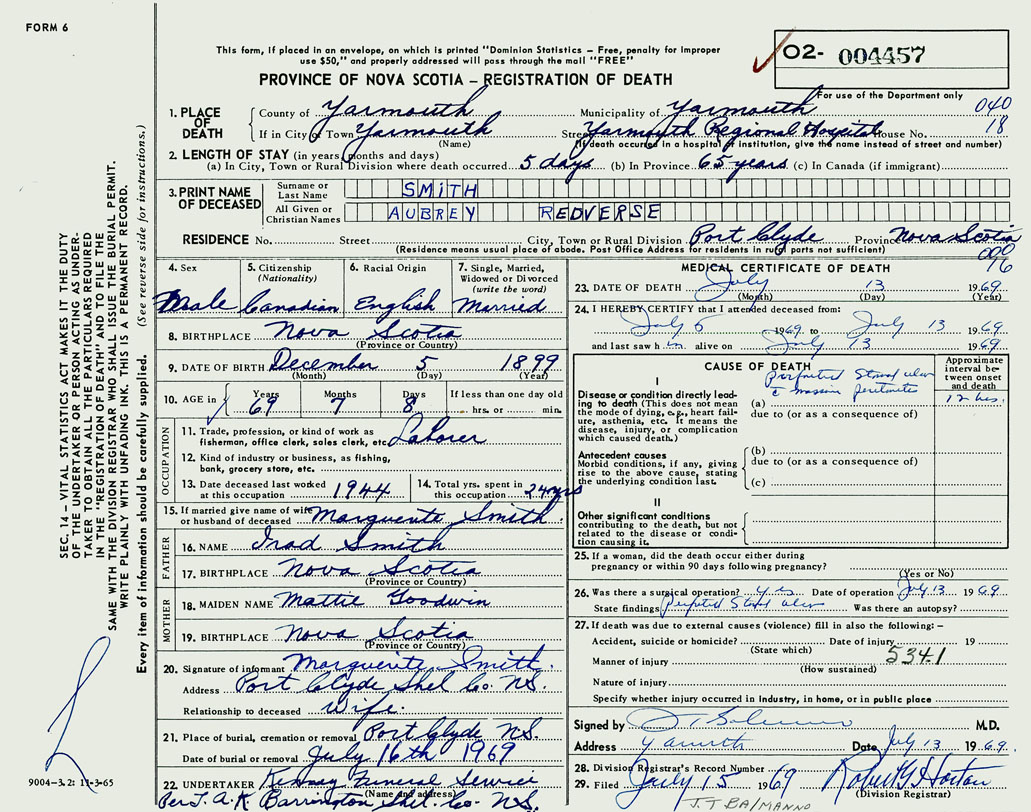 FORM 6
This form, if placed in an envelope, on which is printed "Dominion Statistics – Free, penalty for improper
use $50," and properly addressed will pass through the mail "FREE"
PROVINCE OF NOVA SCOTIA – REGISTRATION OF DEATH
02- 004457
For use of the Department only
040
18
1. PLACE OF DEATH
County of Yarmouth Municipality of Yarmouth
If in City or Town Yarmouth Street Yarmouth Regional Hospital House No.
(Name) (If death occurred in a hospital or institution, give the name instead of street and number)
2. LENGTH OF STAY (in years, months and days)
(a) In City, Town or Rural Division where death occurred 5 days (b) In Province 65 years (c) In Canada (if immigrant)
3. PRINT NAME OF DECEASED
Surname or Last Name SMITH
All Given or Christian Names AUBREY REDVERSE
RESIDENCE No. Street City, Town or Rural Division Port Clyde Province Nova Scotia
(Residence means usual place of abode. Post Office Address for residents in rural parts not sufficient)
000
16
4. Sex 5. Citizenship (Nationality) 6. Racial Origin 7. Single, Married, Widowed or Divorced (write the word)
Male Canadian English Married
8. BIRTHPLACE Nova Scotia
(Province or Country)
9. DATE OF BIRTH December 5 1899
(Month) (Day) (Year)
10. AGE in Years Months Days If less than one day old
69 7 8 hrs. or min.
OCCUPATION
11. Trade, profession, or kind of work as
fisherman, office clerk, sales clerk, etc. Laborer
12. Kind of industry or business, as fishing,
bank, grocery store, etc.
13. Date deceased last worked
at this occupation 1944
14. Total yrs. spent in
this occupation 24 yrs
15. If married give name of wife
or husband of deceased Marguerite Smith
FATHER
16. NAME Irad Smith
17. BIRTHPLACE Nova Scotia
(Province or Country)
MOTHER
18. MAIDEN NAME Mattie Goodwin
19. BIRTHPLACE Nova Scotia
(Province or Country)
20. Signature of informant Marguerite Smith
Address Port Clyde Shel Co. NS.
Relationship to deceased Wife.
21. Place of burial, cremation or removal Port Clyde NS.
Date of burial or removal July 16th 1969
22. UNDERTAKER Kenney Funeral Service
(Name and address)
Per J. A. K. Barrington Shel. Co. NS.
MEDICAL CERTIFICATE OF DEATH
23. DATE OF DEATH July 13 1969
(Month) (Day) (Year)
24. I HEREBY CERTIFY that I attended deceased from:
July 6 1969 to July 13 1969
and last saw h im alive on July 13 1969
CAUSE OF DEATH
Approximate interval between onset and death
I
Disease or condition directly leading to death (This does not mean the mode of dying, e.g., heart failure, asthenia, etc. It means the disease, injury, or complication which caused death.)
(a) perforated Stomal ulcer
c massive peritonitis
12 hrs.
due to (or as a consequence of)
Antecedent causes
Morbid conditions, if any, giving rise to the above cause, stating the underlying condition last.
(b)
due to (or as a consequence of)
(c)
II
Other significant conditions
contributing to the death, but not related to the disease or condition causing it.
25. If a woman, did the death occur either during
pregnancy or within 90 days following pregnancy?
(Yes or No)
26. Was there a surgical operation? yes Date of operation July 13 1969
State findings Perforated Stomal ulcer Was there an autopsy?
27. If death was due to external causes (violence) fill in also the following:–
Accident, suicide or homicide? Date of injury 19
(State which)
534.1
Manner of injury
(How sustained)
Nature of injury
Specify whether injury occurred in industry, in home, or in public place
Signed by M.D.
Address Yarmouth Date July 13 1969
28. Division Registrar's Record Number
29. Filed July 15 1969 Robert G Horton
(Division Registrar)
J.T. BALMANNO
SEC. 14 – VITAL STATISTICS ACT MAKES IT THE DUTY
OF THE UNDERTAKER OR PERSON ACTING AS UNDERTAKER
TO OBTAIN ALL THE PARTICULARS REQUIRED
IN THE "REGISTRATION OF DEATH" AND TO FILE THE
SAME WITH THE DIVISION REGISTRAR WHO SHALL ISSUE THE BURIAL PERMIT.
WRITE PLAINLY WITH UNFADING INK. THIS IS A PERMANENT RECORD.
Every item of information should be carefully supplied. (See reverse side for instructions.)
9004-3.2: 11-3-65